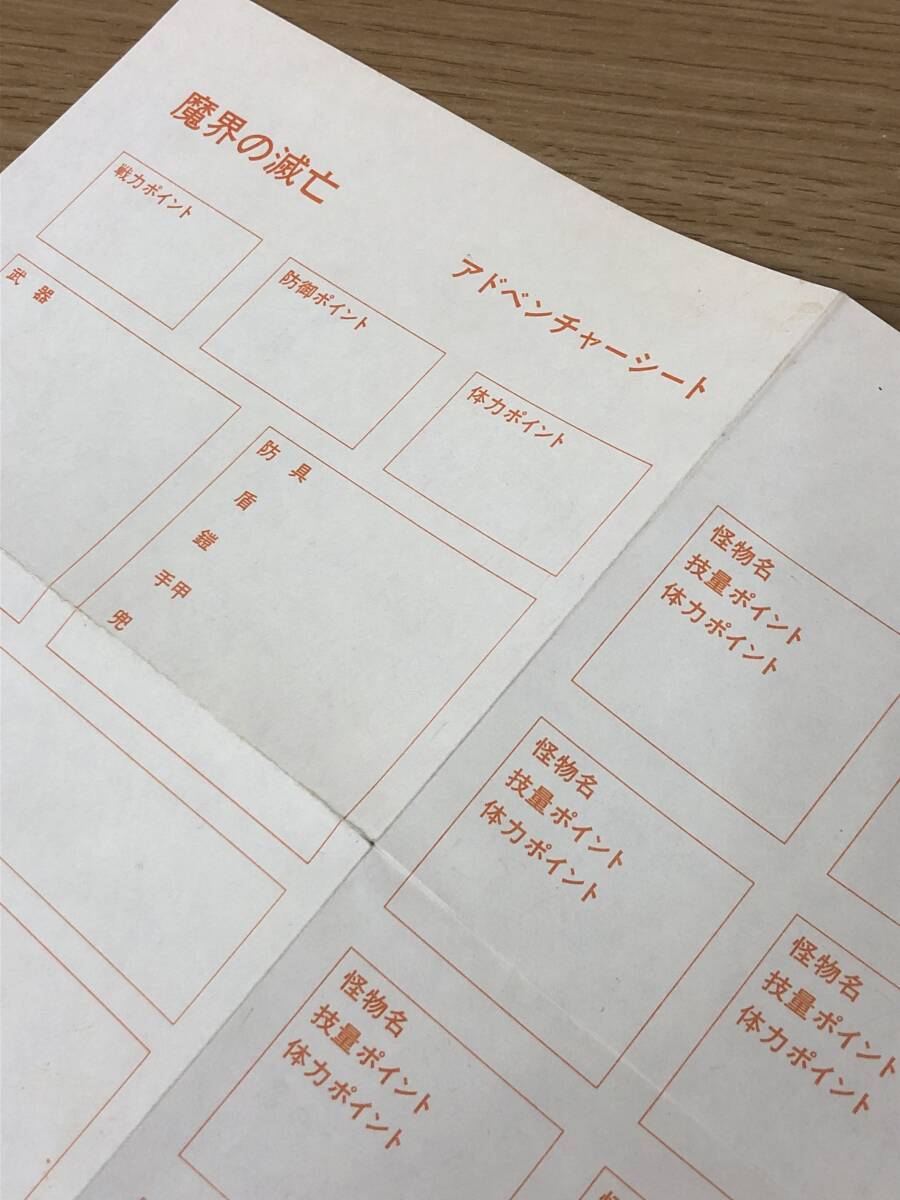 魔界の滅亡
アドベンチャーシート
戦力ポイント
防御ポイント
体力ポイント
武器
防具
盾
鎧
手甲
兜
怪物名
技量ポイント
体力ポイント
怪物名
技量ポイント
体力ポイント
怪物名
技量ポイント
体力ポイント
怪物名
技量ポイント
体力ポイント